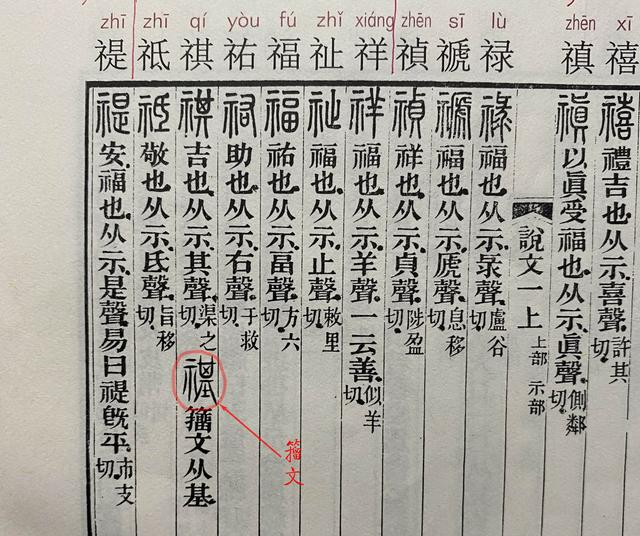 zhī zhī qí yòu fú zhǐ xiáng zhēn sī lù zhēn xī
禔 祗 祺 祐 福 祉 祥 禎 禠 禄 禛 禧
禧禮吉也从示喜聲許其切
禛以眞受福也从示眞聲側鄰切
說文一上 上部 示部
祿福也从示彔聲盧谷切
禠福也从示虒聲息移切
禎祥也从示貞聲陟盈切
祥福也从示羊聲一云善似羊切
祉福也从示止聲敕里切
福祐也从示畐聲方六切
祐助也从示右聲于救切
祺吉也从示其聲渠之切𥛺籒文从基
祗敬也从示氐聲旨移切
禔安福也从示是聲易曰禔旣平市支切
籀文